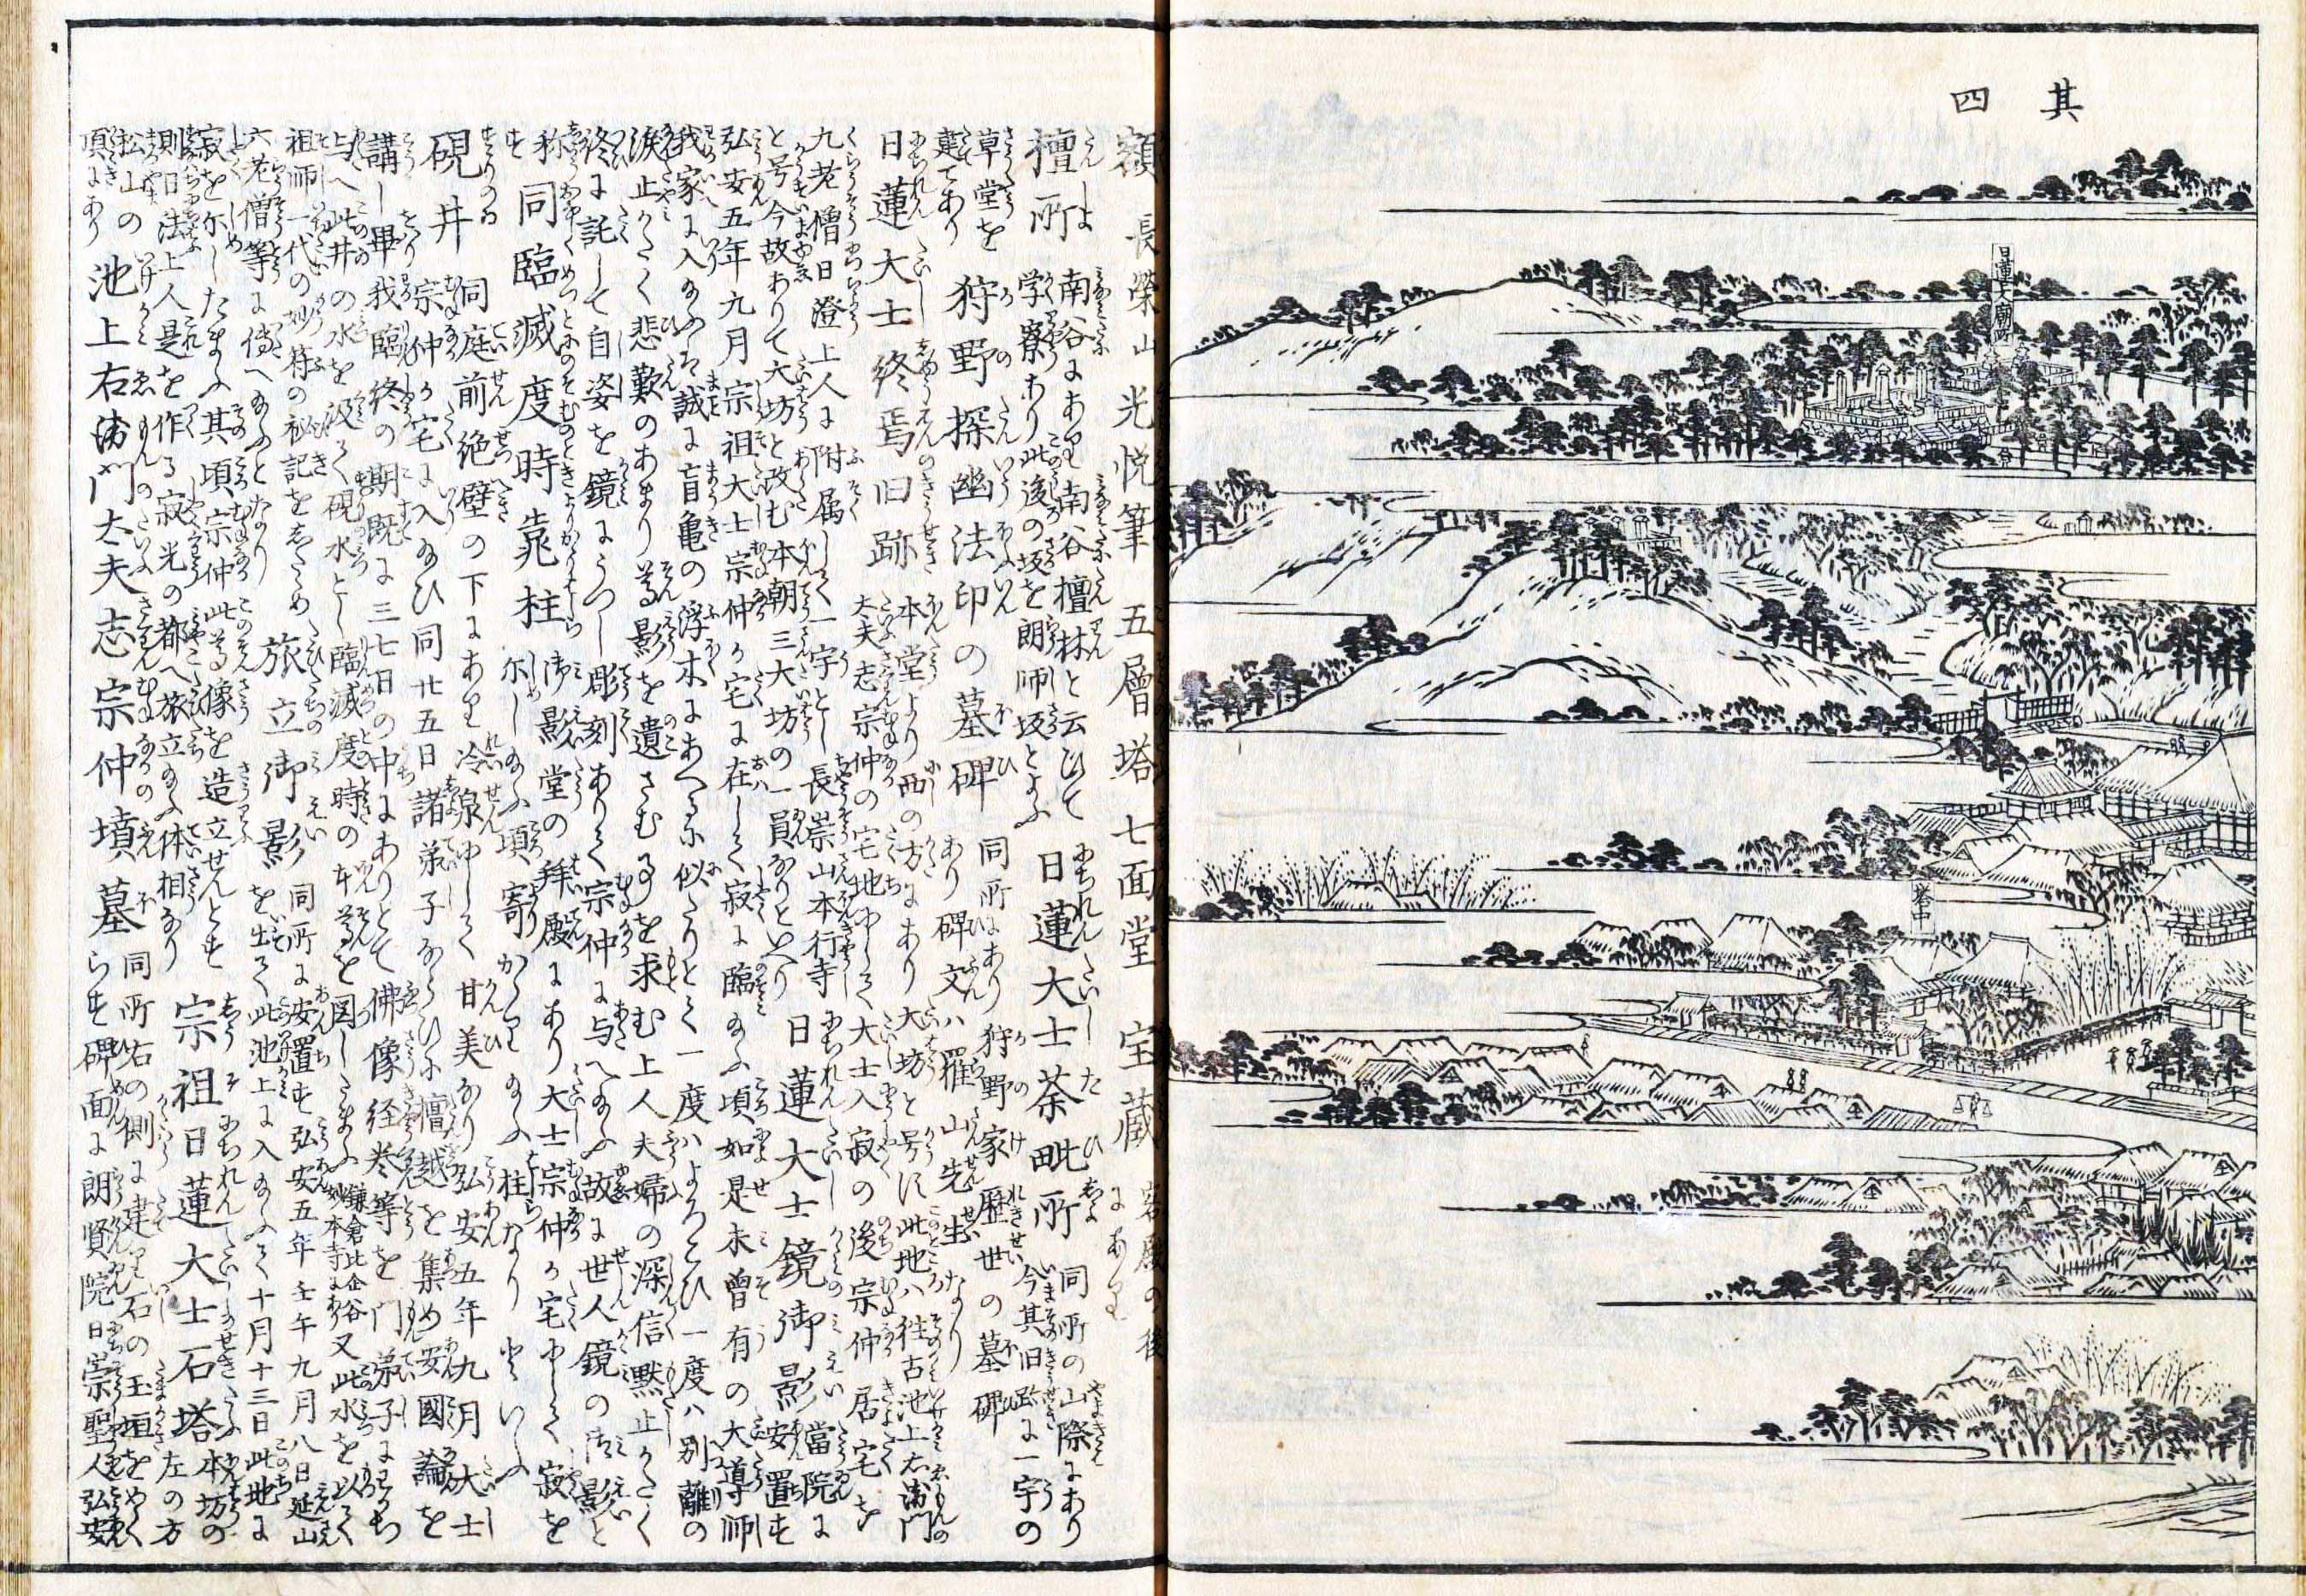 其四
日蓮大士廟所
塔中
額 長栄山 光悦筆 五層塔 七面堂 宝蔵 客殿の後にあり
檀所 南谷にあり南谷檀林と云ひて学寮あり此後の坂を朗師坂とよふ 日蓮大士荼毗所 同所の山際にあり今其旧跡に一宇の
草堂を建てあり 狩野探幽法印の墓碑 同所にあり狩野家歴世の墓碑あり碑文ハ羅山先生なり
日蓮大士終焉旧跡 本堂より西の方にあり大坊と号に此地ハ往古池上右衛門大夫志宗仲の宅地にして大士入寂の後宗仲居宅を
九老僧日澄上人に附属して一宇とし長崇山本行寺と号今故ありて大坊と改む本朝三大坊の一員なりといへり 日蓮大士鏡御影 當院に安置す
弘安五年九月宗祖大士宗仲の宅に在して寂に臨給ふ頃如是未曾有の大導師
我家に入給ふハ誠に盲亀の浮木にあへるに似たりとて一度ハよろこひ一度ハ別離の
涙止かたく悲歎のあまり尊影を遺さむ事を求む上人夫婦の深信黙止かたく
終に託して自姿を鏡にうつし彫刻ありて宗仲に与へ給ふ故に世人鏡の御影と
称す 同臨滅度時靠柱 御影堂の拝殿にあり大士宗仲の宅にして寂を示し給ふ頃寄かゝり給ふ柱なりといふ
硯井 同庭前絶壁の下にあり冷泉にして甘美なり弘安五年九月大士宗仲の宅に入給ひ同廿五日諸弟子ならひに檀越を集め安國論を
講し畢我臨終の期既に三七日の中にありとて佛像経巻等を門弟子にわかち
与へ此井の水を汲て硯水とし臨滅度時の本尊を図したまふ鎌倉比企谷妙本寺にあり又此水を以て
祖師一代の妙符の秘記をしたゝめ六老僧等に傳へ給ふとなり 旅立御影 同所に安置す弘安五年壬午九月八日延山を出て此池上に入給ふて十月十三日此地に
寂を示したまふ其頃宗仲此尊像を造立せんとす則日法上人是を作る寂光の都へ旅立給ふ体相なり 宗祖日蓮大士石塔 本坊の左の方
松山の頂にあり 池上右衛門大夫志宗仲墳墓 同所右の側に建り石の玉垣をめくらす碑面に朗賢院日崇聖人弘安